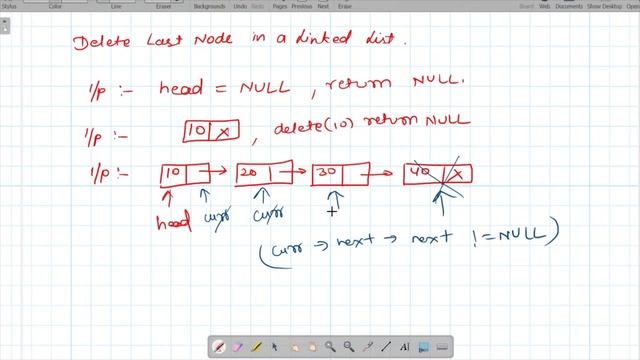 Stylus Color Line Eraser Backgrounds Undo Page Previous Next Erase Board Web Documents Show Desktop Open
Delete Last Node in a Linked List.
i/p :- head = NULL , return NULL.
i/p :- 10 X , delete(10) return NULL
i/p :- 10 → 20 → 30 → 40 X
head curr curr
(curr → next → next != NULL)